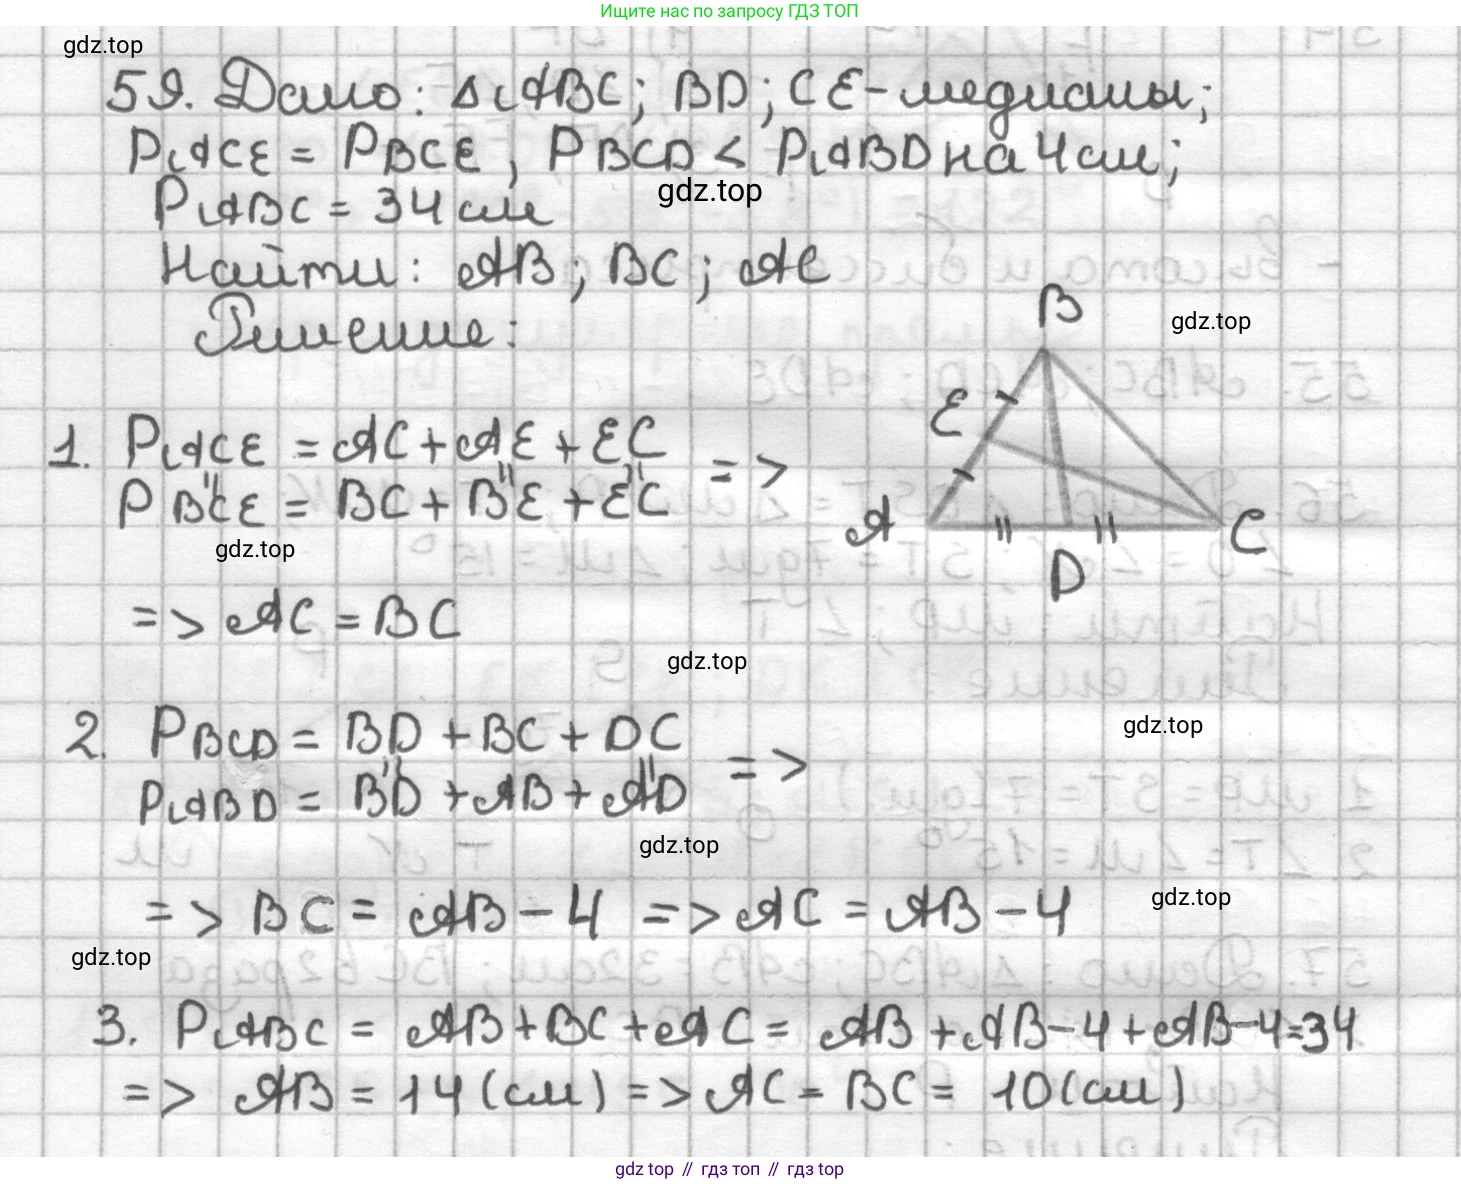 Ищите нас по запросу ГДЗ ТОП
gdz.top
59. Дано: △ABC; BD; CE-медианы;
PACE = PBCE, PBCD < PABD на 4см;
gdz.top
PABC = 34 см
Найти: AB; BC; AC
Решение:
B
gdz.top
E
1. PACE = AC + AE + EC
PBCE = BC + BE + EC
=>
A
C
D
gdz.top
=> AC = BC
gdz.top
gdz.top
2. PBCD = BD + BC + DC
PABD = BD + AB + AD
=>
gdz.top
=> BC = AB - 4 => AC = AB - 4
gdz.top
gdz.top
3. PABC = AB + BC + AC = AB + AB - 4 + AB - 4 = 34
=> AB = 14 (см) => AC = BC = 10 (см)
gdz top // гдз топ // гдз top